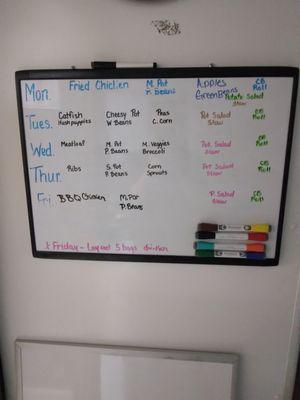 Mon. Fried Chicken M. Pot Apples CB
Beans Green Beans Roll
Potato Salad
Slaw
Tues. Catfish Cheesy Pot Peas Pot Salad CB
Hushpuppies W Beans C. Corn Slaw Roll
Wed. Meatloaf M. Pot M. Veggies Pot. Salad CB
P. Beans Broccoli Slaw Roll
Thur. Ribs S. Pot Corn Pot Salad CB
P. Beans Sprouts Slaw Roll
Fri. BBQ Chicken M. Pot P. Salad CB
P. Beans Slaw Roll
Friday - Lay out 5 bags chicken